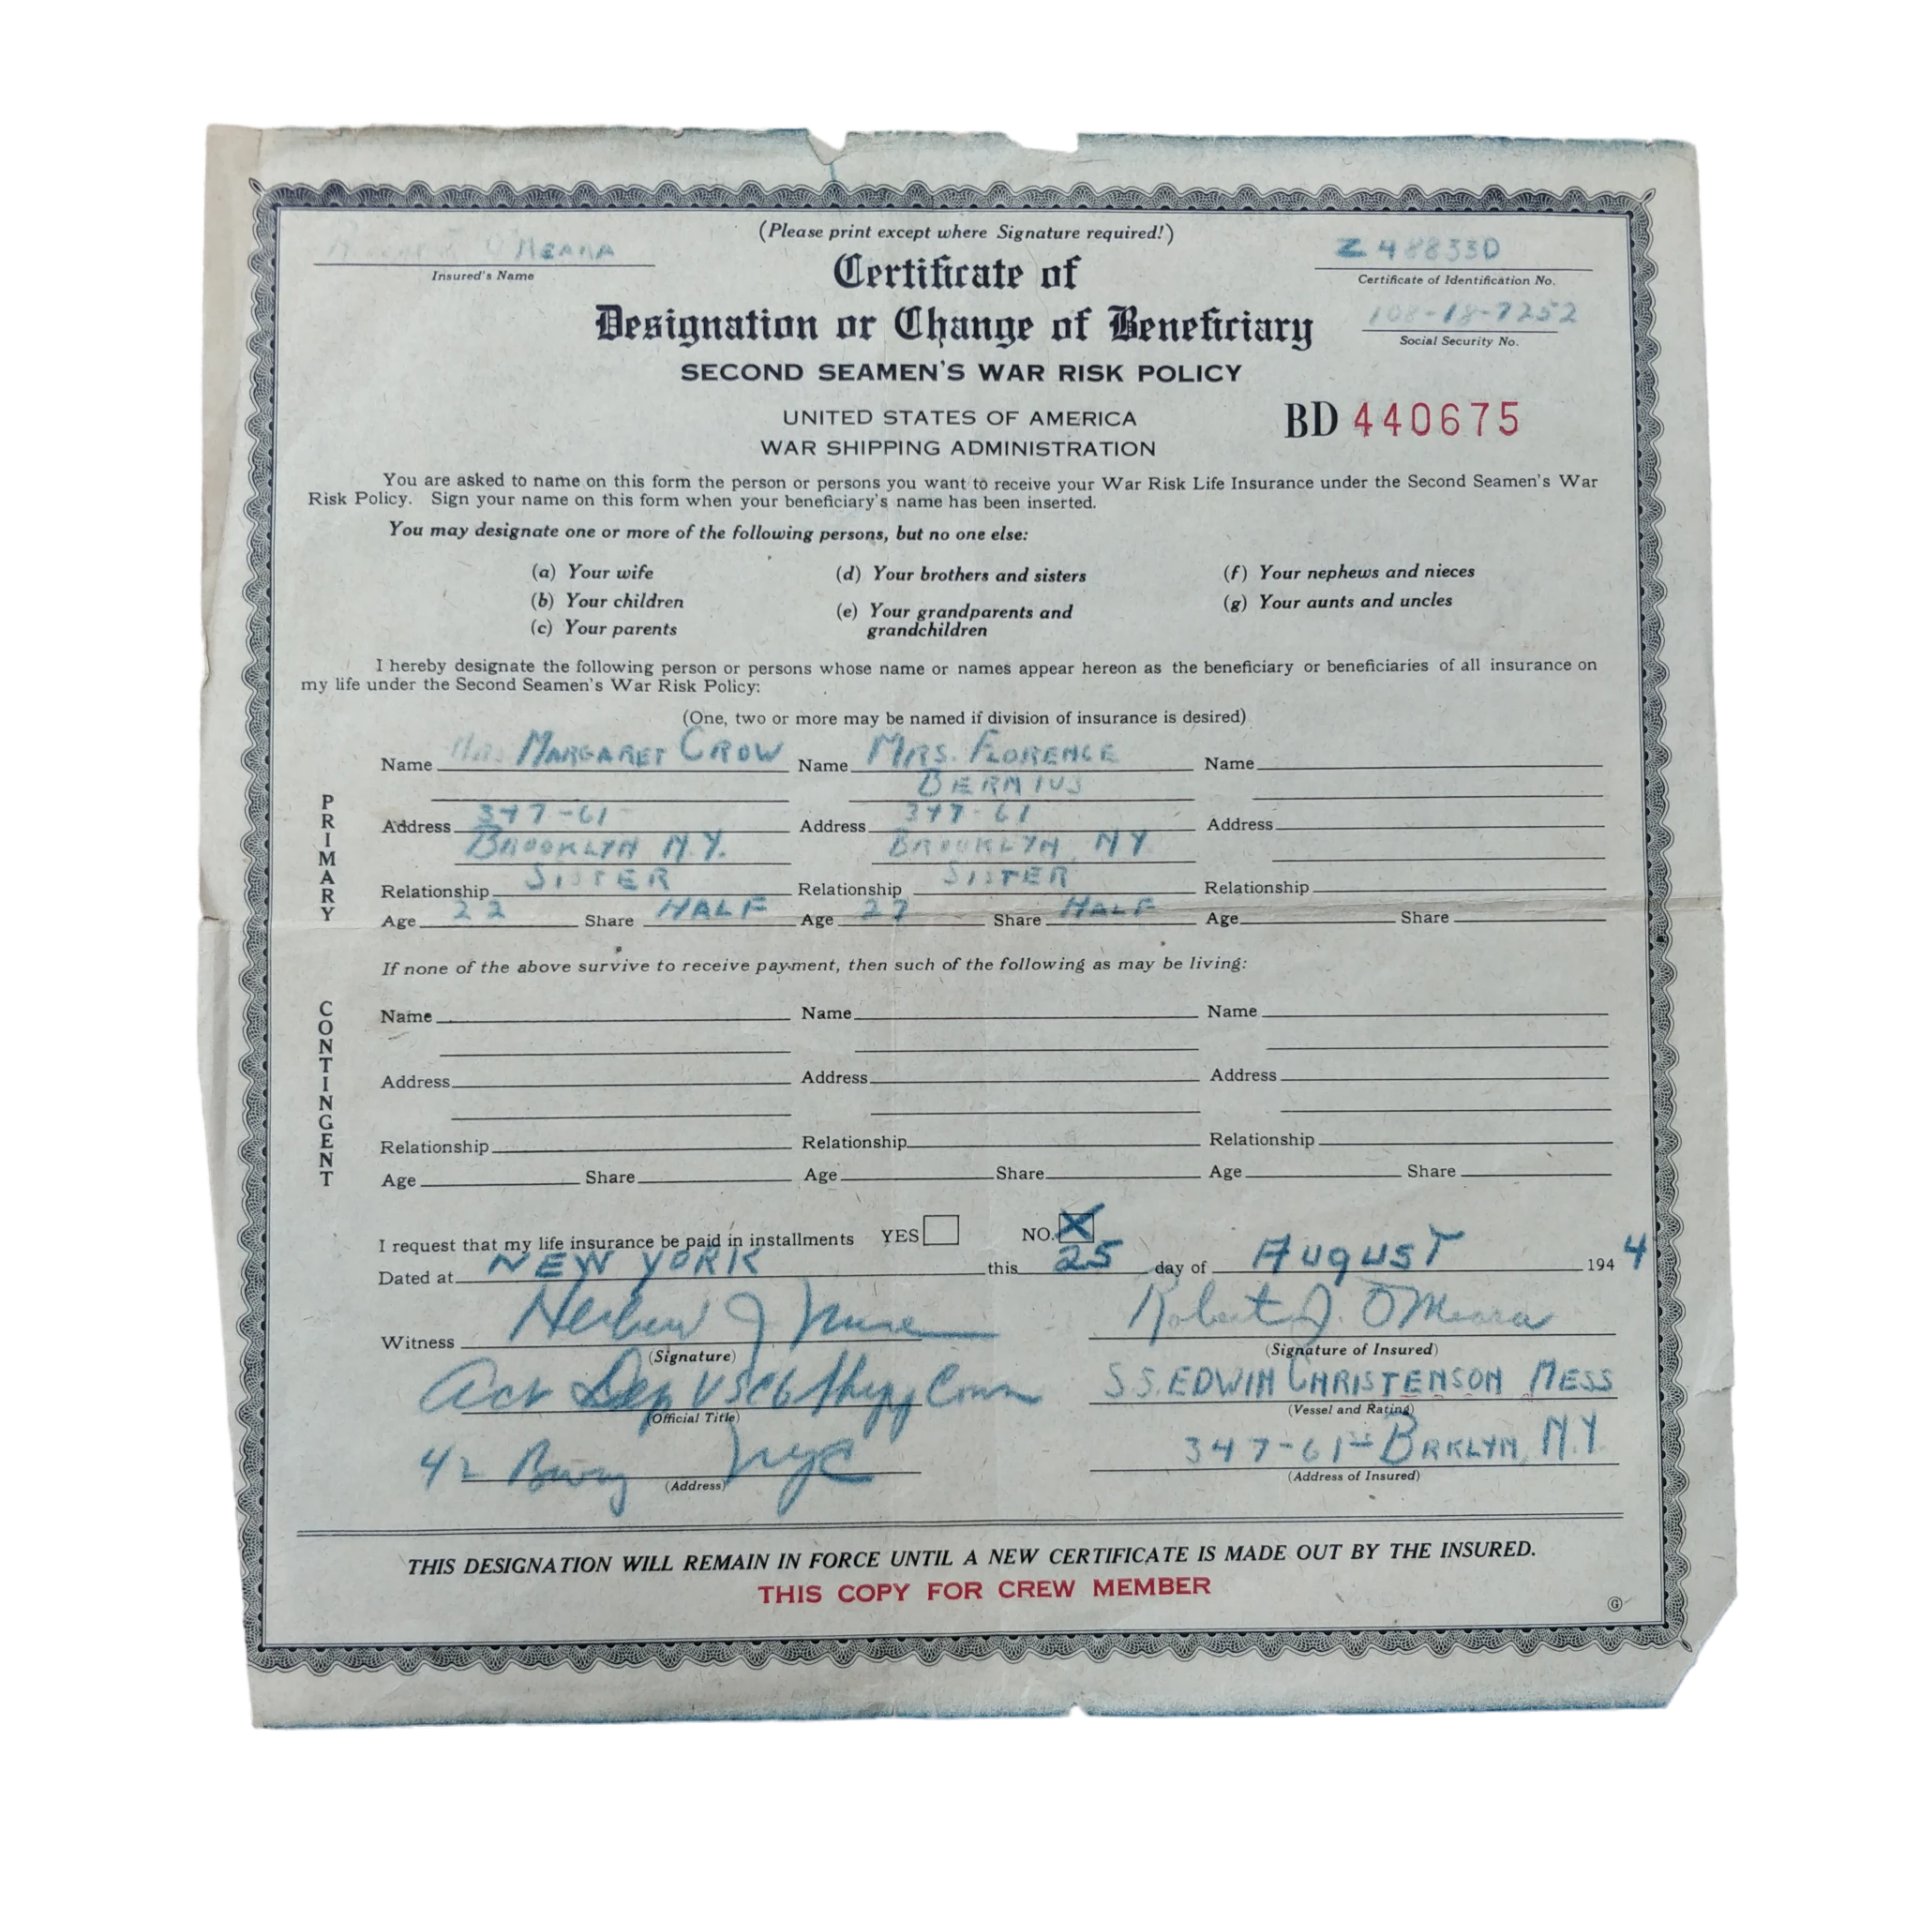 (Please print except where Signature required!)
O'MEARA
Insured's Name
Z 488330
Certificate of Identification No.
Certificate of
Designation or Change of Beneficiary
108-18-7252
Social Security No.
SECOND SEAMEN'S WAR RISK POLICY
UNITED STATES OF AMERICA
BD 440675
WAR SHIPPING ADMINISTRATION
You are asked to name on this form the person or persons you want to receive your War Risk Life Insurance under the Second Seamen's War
Risk Policy. Sign your name on this form when your beneficiary's name has been inserted.
You may designate one or more of the following persons, but no one else:
(a) Your wife (d) Your brothers and sisters (f) Your nephews and nieces
(b) Your children (e) Your grandparents and (g) Your aunts and uncles
(c) Your parents grandchildren
I hereby designate the following person or persons whose name or names appear hereon as the beneficiary or beneficiaries of all insurance on
my life under the Second Seamen's War Risk Policy:
(One, two or more may be named if division of insurance is desired)
PRIMARY
Name Mrs MARGARET CROW Name MRS. FLORENCE Name
BERMIUS
Address 347-61 Address 347-61 Address
BROOKLYN N.Y. BROOKLYN, NY
Relationship SISTER Relationship SISTER Relationship
Age 22 Share HALF Age 27 Share HALF Age Share
If none of the above survive to receive payment, then such of the following as may be living:
CONTINGENT
Name Name Name
Address Address Address
Relationship Relationship Relationship
Age Share Age Share Age Share
I request that my life insurance be paid in installments YES NO. X
Dated at NEW YORK this 25 day of AUGUST 1944
Witness Herbert J Robert J. O'Meara
(Signature) (Signature of Insured)
Act Dep USCG Shipg Comm S.S. EDWIN CHRISTENSON MESS
(Official Title) (Vessel and Rating)
42 Bwy NYC 347-61 ST BRKLYN, N.Y.
(Address) (Address of Insured)
THIS DESIGNATION WILL REMAIN IN FORCE UNTIL A NEW CERTIFICATE IS MADE OUT BY THE INSURED.
THIS COPY FOR CREW MEMBER
G